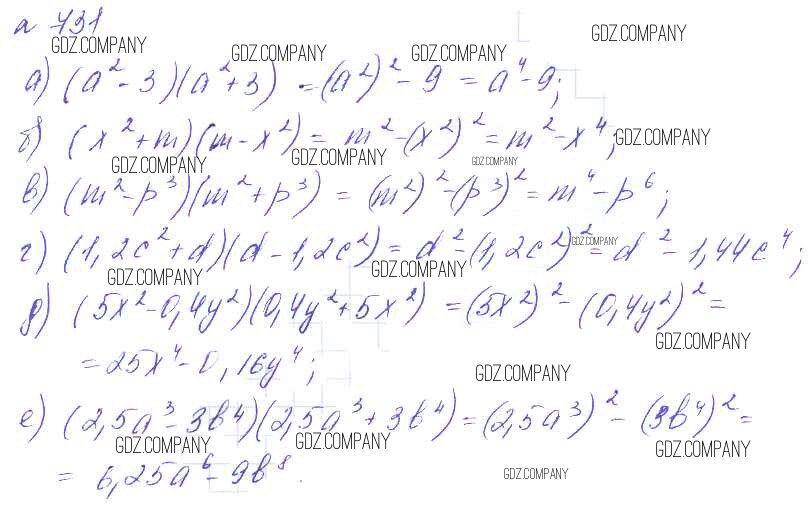 № 731
GDZ.COMPANY GDZ.COMPANY GDZ.COMPANY GDZ.COMPANY
а) (a² - 3)(a² + 3) = (a²)² - 9 = a⁴ - 9;
б) (x² + m)(m - x²) = m² - (x²)² = m² - x⁴; GDZ.COMPANY
GDZ.COMPANY GDZ.COMPANY GDZ.COMPANY
в) (m² - p³)(m² + p³) = (m²)² - (p³)² = m⁴ - p⁶;
г) (1,2c² + d)(d - 1,2c²) = d² - (1,2c²)² = d² - 1,44c⁴; GDZ.COMPANY
GDZ.COMPANY GDZ.COMPANY
д) (5x² - 0,4y²)(0,4y² + 5x²) = (5x²)² - (0,4y²)² =
GDZ.COMPANY
= 25x⁴ - 0,16y⁴;
GDZ.COMPANY
е) (2,5a³ - 3b⁴)(2,5a³ + 3b⁴) = (2,5a³)² - (3b⁴)² =
GDZ.COMPANY GDZ.COMPANY GDZ.COMPANY
= 6,25a⁶ - 9b⁸. GDZ.COMPANY